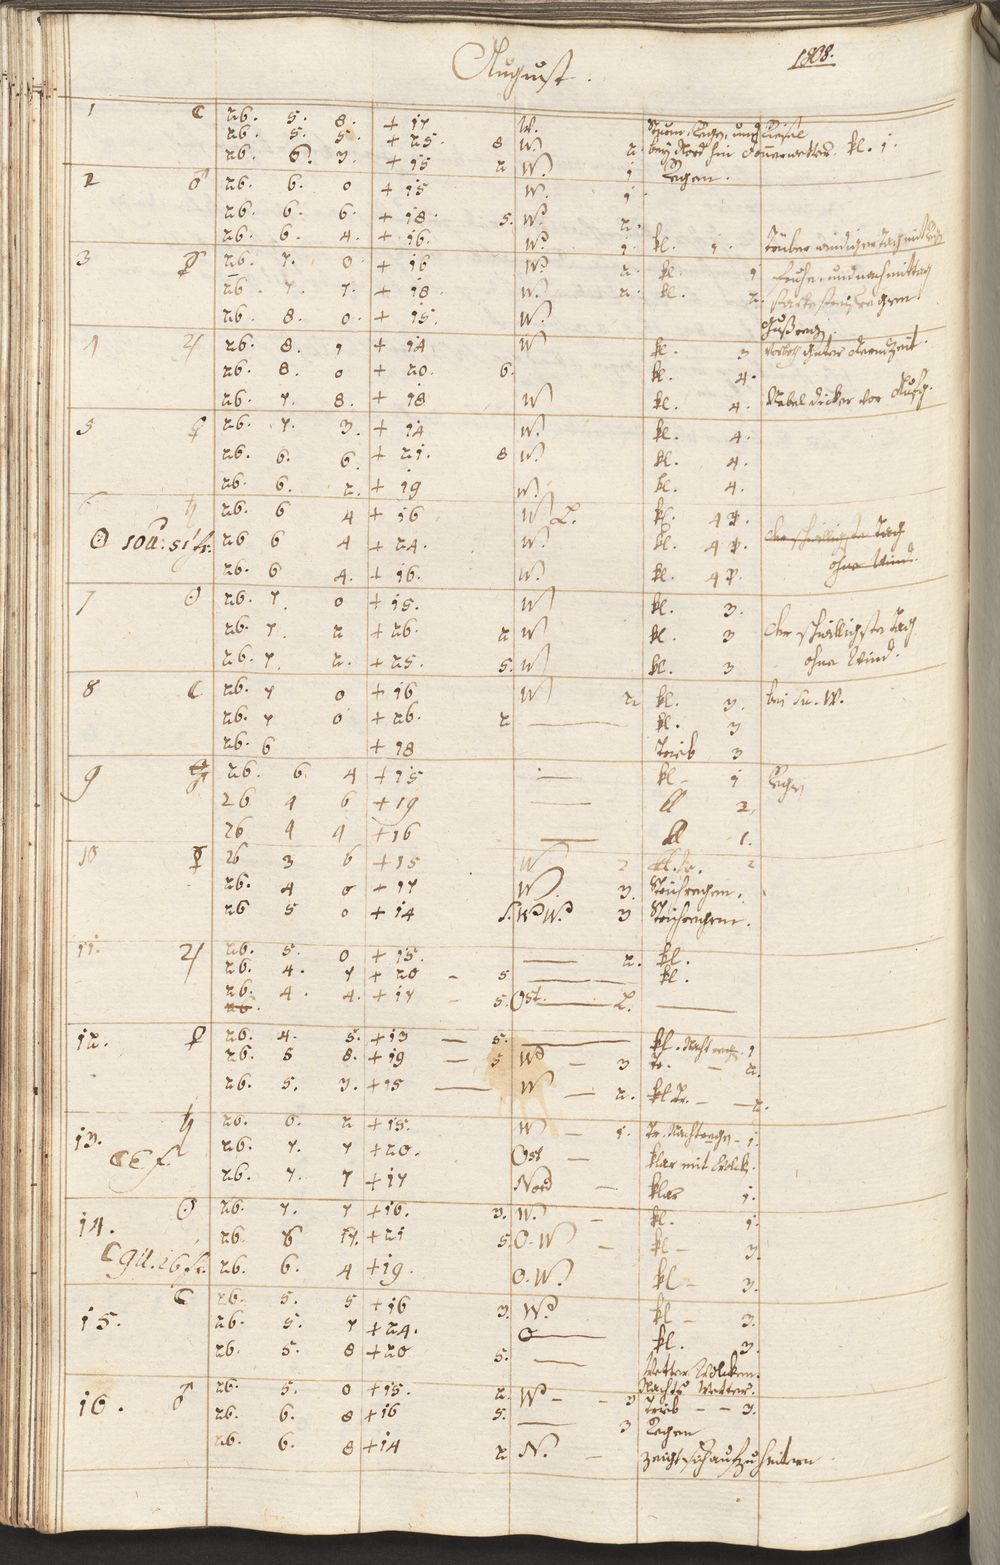 August.
1808.
1 ☾ 26. 5. 8. + 17 W. Sturm, Regen, und
26. 5. 5. + 25. 8 W. 2. bey Nord hin Donnerwetter. kl. 1.
26. 6. 3. + 15 2 W. 1 Regen.
2 ♂ 26. 6. 0 + 15 W. 1.
26. 6. 6. + 18. 5. W. 2.
26. 6. 4. + 16. W. 1. kl. 1. Trüber windiger Tag mit
3 ☿ 26. 7. 0. + 16 W. 2. kl. 1 Frühe, und nachmittag
26. 7. 7. + 18. W. 2. kl. 2. starke
26. 8. 0. + 15. W.
4 ♃ 26. 8. 1 + 14 W kl. 3 guter
26. 8. 0 + 20. 6. kl. 4.
26. 7. 8. + 18 W kl. 4. Nebel dicker vor
5 ♀ 26. 7. 3. + 14 W. kl. 4.
26. 6. 6. + 21. 8 W. kl. 4.
26. 6. 2. + 19 W. kl. 4.
6 ♄ 26. 6 4 + 16 W kl. 4
☉ 10 U. 51 fr. 26 6 4 + 24. W. kl. 4 der schwülligste Tag
26. 6 4. + 16. W. kl. 4 ohne Wind.
7 ☉ 26. 7. 0 + 15. W kl. 3.
26. 7. 2 + 26. 2 W kl. 3 der schwülligste Tag
26. 7. 2. + 25. 5. W kl. 3 ohne Wind.
8 ☾ 26. 7 0 + 16 W 2 kl. 3. bei W.
26. 7 0 + 26. 2 — kl. 3
26. 6 + 18 Trüb 3
9 ♂ 26. 6 4 + 15 — kl — 1 Regen
26 4 6 + 19 — kl 2
26 4 4 + 16 — kl 1.
10 ☿ 26 3 6 + 15 W 2
26. 4 0 + 17 W 3. Strichregen.
26 5 0 + 14 3 Strichregen.
11. ♃ 26. 5. 0 + 15. — 2. kl.
26. 4. 7 + 20 — 5 — kl.
26. 4. 4. + 17 — 5. Ost. —
12. ♀ 26. 4. 5. + 13 — 5. — kl. Nacht 1
26. 5 8. + 19 — 5 W — 3 tr. — 2.
26. 5. 3. + 15 — W — 2. kl. — 2.
13. ♄ 26. 6. 2 + 15. W — 1. tr. Nachtregen — 1.
26. 7. 7 + 20. Ost — klar mit Wolk.
26. 7. 7 + 17 Nord — klar 1.
14. ☉ 26. 7. 7 + 16. 3. W. — kl. 1.
26. 8 + 21 5. O. W — kl — 3.
26. 6. 4 + 19. O. W. kl — 3.
15. ☾ 26. 5. 5 + 16 3. W. kl — 3.
26. 5. 7 + 24. O — kl. 3.
26. 5. 8 + 20 5. — Wetter Wolcken.
Nachts Wetter.
16. ♂ 26. 5. 0 + 15. 2. W — 3 Trüb — 3.
26. 6. 8 + 16 5. — 3 Regen
26. 6. 8 + 14 2 N. — zeigt sich aufzuheitern